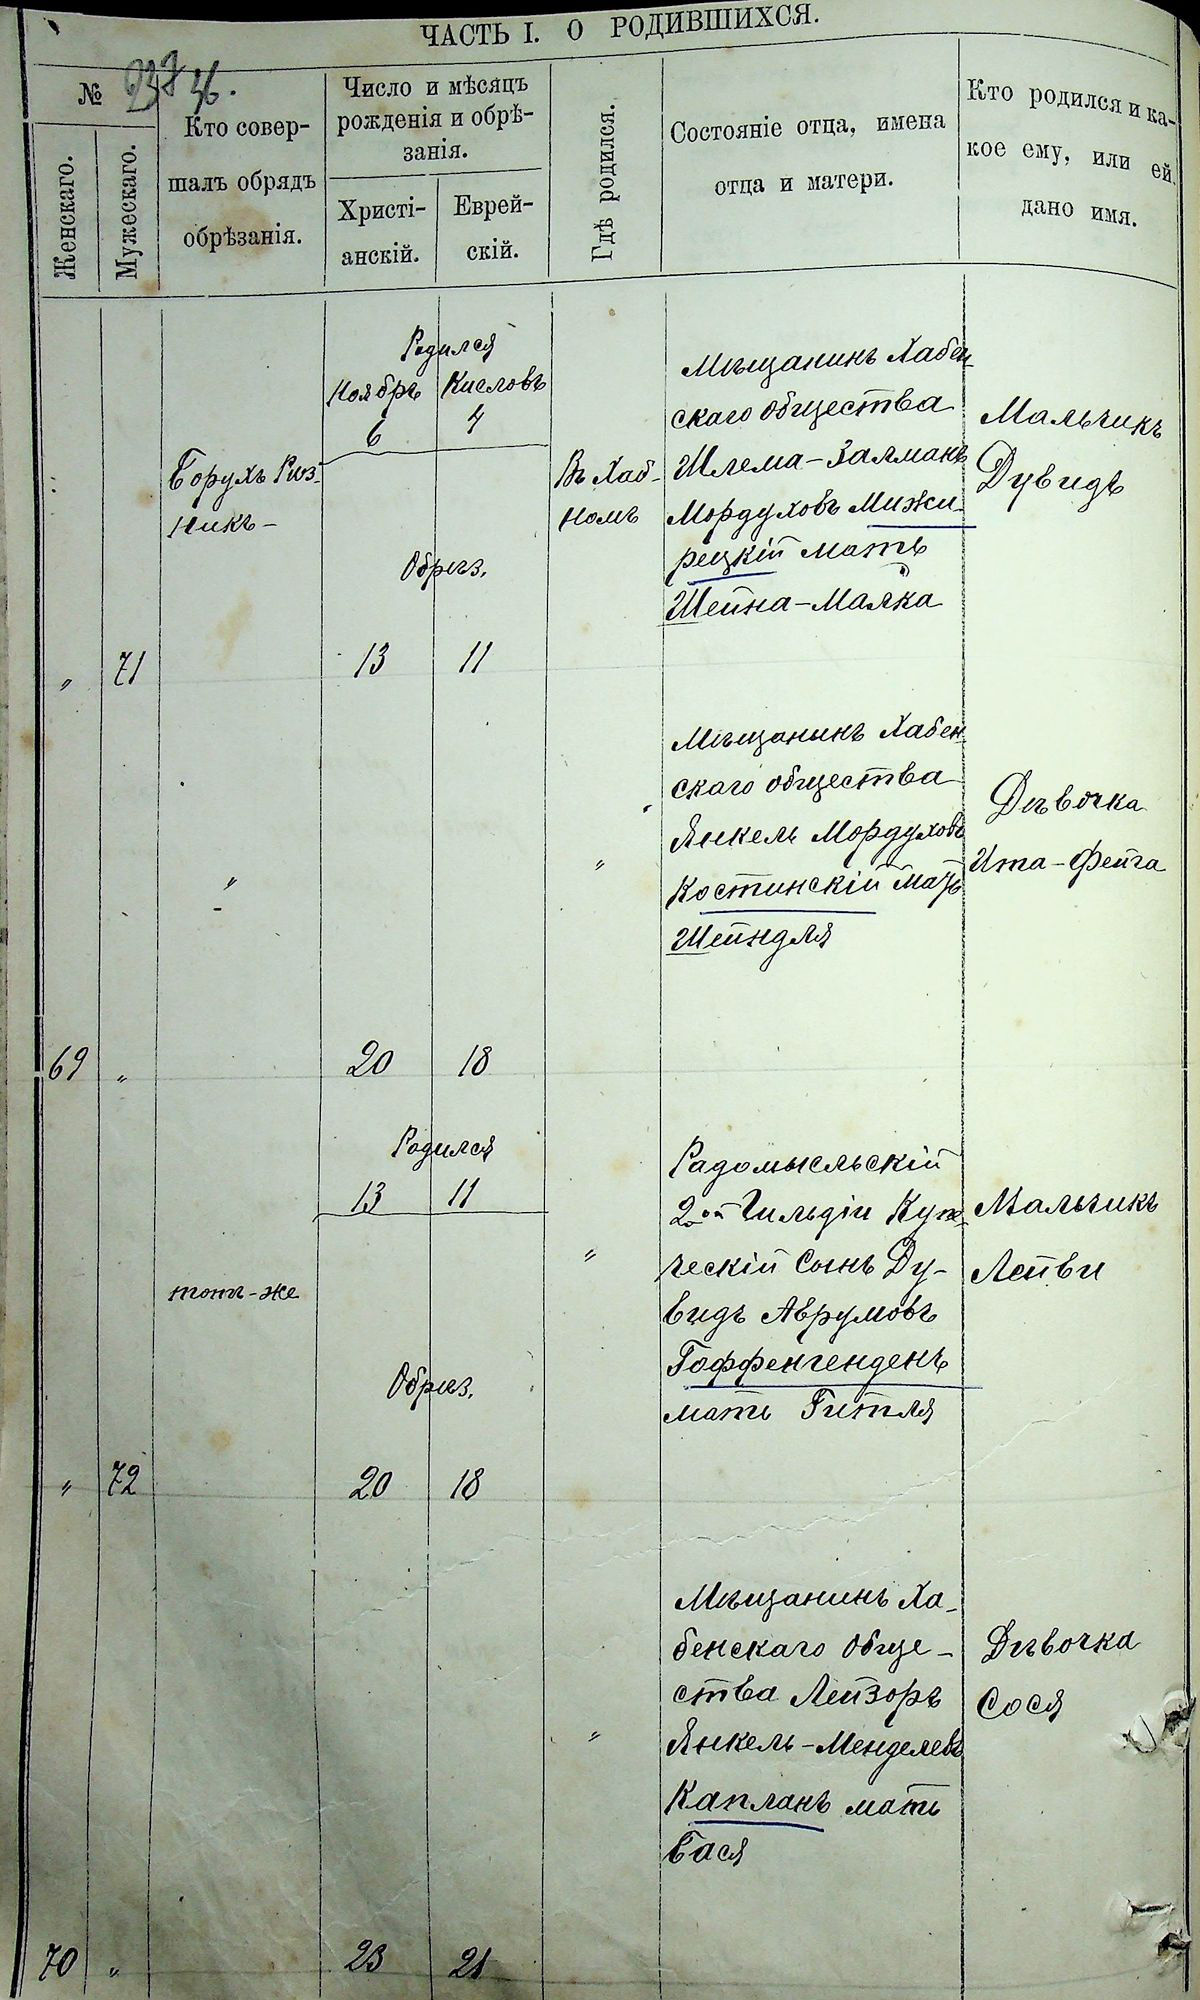 ЧАСТЬ I. О РОДИВШИХСЯ.
№
Женскаго.
Мужескаго.
Кто совер-
шалъ обрядъ
обрѣзанія.
Число и мѣсяцъ
рожденія и обрѣ-
занія.
Христі-
анскій.
Еврей-
скій.
Гдѣ родился.
Состояніе отца, имена
отца и матери.
Кто родился и ка-
кое ему, или ей
дано имя.
„ 71
Борухъ Риз-
никъ -
Родился
Ноябрь Кисловъ
6 4
Обрѣз.
13 11
Въ Хаб-
номъ
Мѣщанинъ Хабен-
скаго общества
Шлема-Залманъ
Мордуховъ Мижи-
рецкій мать
Шейна-Малка
Мальчикъ
Дувидъ
69 „
„
20 18
„
Мѣщанинъ Хабен-
скаго общества
Янкель Мордуховъ
Костинскій Мать
Шейндля
Дѣвочка
Ита-Фейга
„ 72
тотъ-же
Родился
13 11
Обрѣз.
20 18
„
Радомысльскій
2ой Гильдіи Купе-
ческій Сынъ Ду-
видъ Аврумовъ
Гоффенгенденъ
мать Гитля
Мальчикъ
Лейви
70 „
23 21
„
Мѣщанинъ Ха-
бенскаго Обще-
ства Лейзоръ
Янкель-Менделевъ
Капланъ мать
Бася
Дѣвочка
Сося